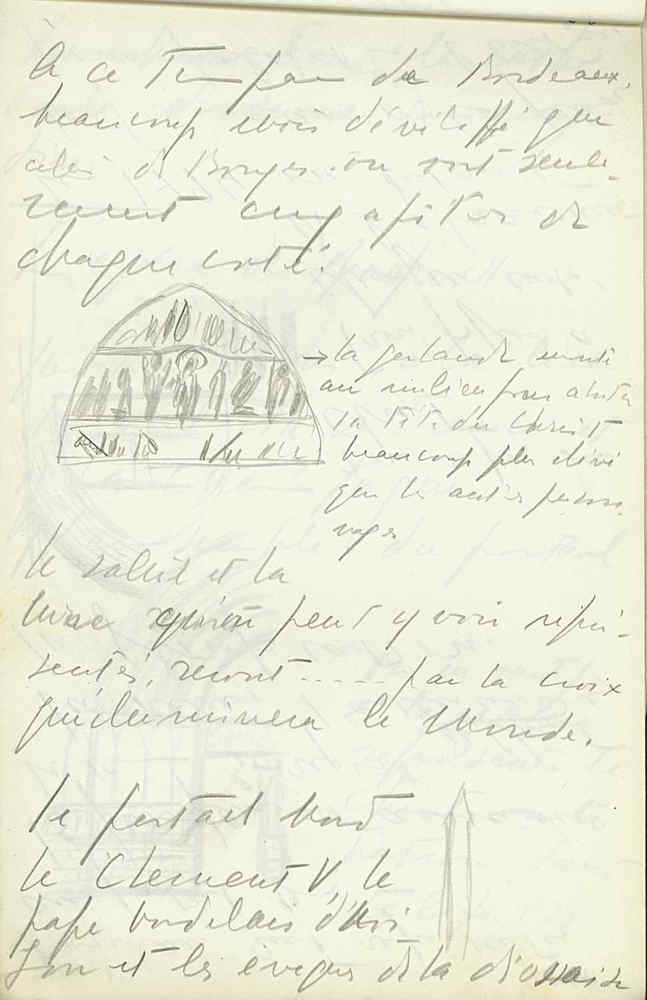 A ce Tympan de Bordeaux,
beaucoup moins développé que
celui de Bourges. on voit seule-
ment cinq apôtres de
chaque côté.
→ la guirlande monte
au milieu pour abriter
la tête du Christ
beaucoup plus élevé
que les autres person-
nages
le soleil et la
lune qu'on peut y voir repré-
sentés, seront ..... par la croix
qui illuminera le Monde.
le portail Nord
le Clement V, le
pape bordelais d'Avi
gnon et les évêques de la